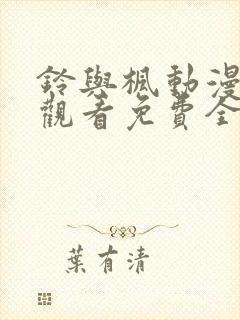 鈴與楓動漫
觀看免費全
葉有清